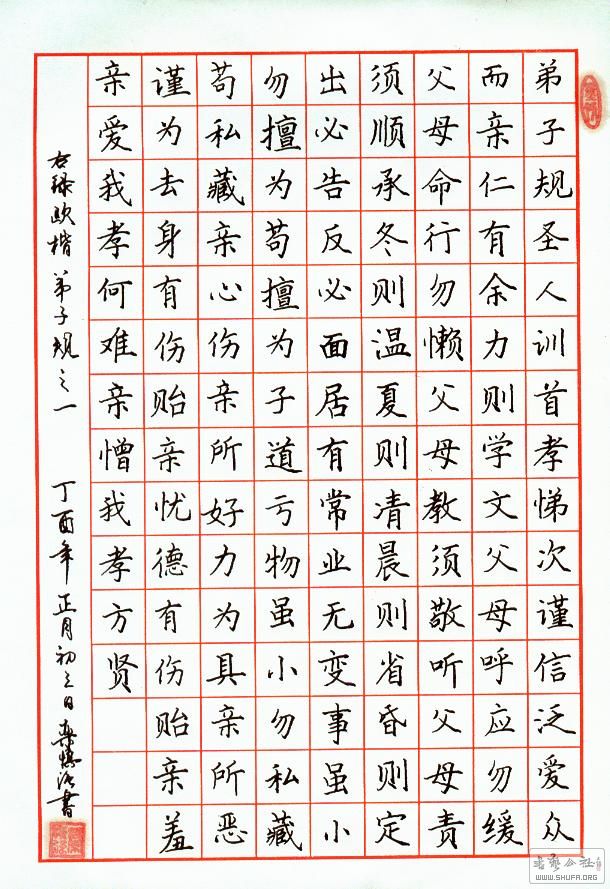 弟子规圣人训首孝悌次谨信泛爱众
而亲仁有余力则学文父母呼应勿缓
父母命行勿懒父母教须敬听父母责
须顺承冬则温夏则凊晨则省昏则定
出必告反必面居有常业无变事虽小
勿擅为苟擅为子道亏物虽小勿私藏
苟私藏亲心伤亲所好力为具亲所恶
谨为去身有伤贻亲忧德有伤贻亲羞
亲爱我孝何难亲憎我孝方贤
右录欧楷弟子规之一 丁酉年正月初三日 书
书艺公社
WWW.SHUFA.ORG